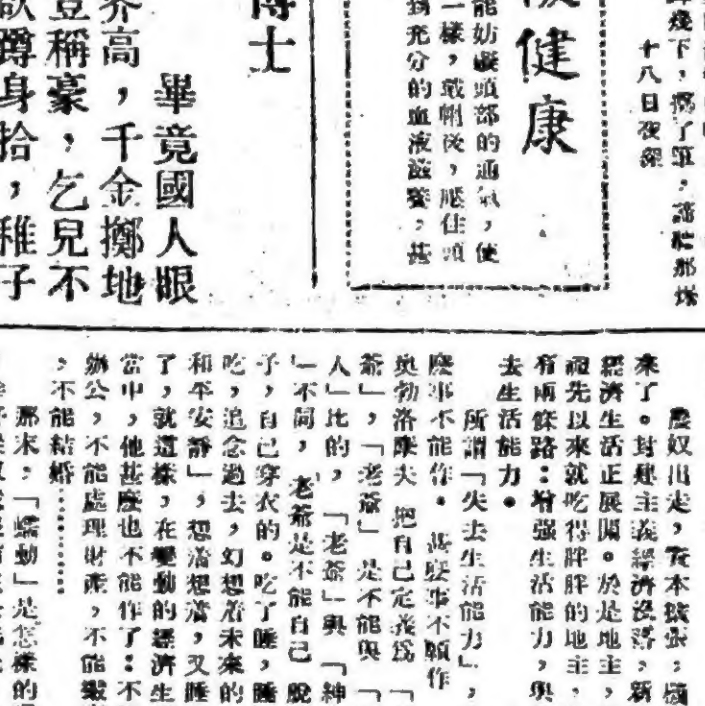 十八日夜深
健康
能妨礙頭部的通氣，使
一樣，戴帽後，壓住頭
到充分的血液滋養，甚
博士
畢竟國人眼
界高，千金擲地
豈稱豪，乞兒不
欲蹲身拾，稚子
農奴出走，資本擴張，
來了。封建主義經濟沒落，新
經濟生活正展開。於是地主，
祖先以來就吃得胖胖的地主，
有兩條路：增强生活能力，與
去生活能力。
所謂「失去生活能力」，
麼事不能作。甚麼事不願作
奥勃洛摩夫 把自己定義爲「
爺」，「老爺」是不能與「
人」比的，「老爺」與「紳
「不同，老爺是不能自己 脫
子，自己穿衣的。吃了睡，睡
吃，追念過去，幻想着未來的
和平安靜」，想着想着，又睡
了，就這樣，在變動的經濟生
當中，他甚麼也不能作了：不
辦公，不能處理財產，不能
，不能結婚…………
那末，「蠕動」是怎樣的